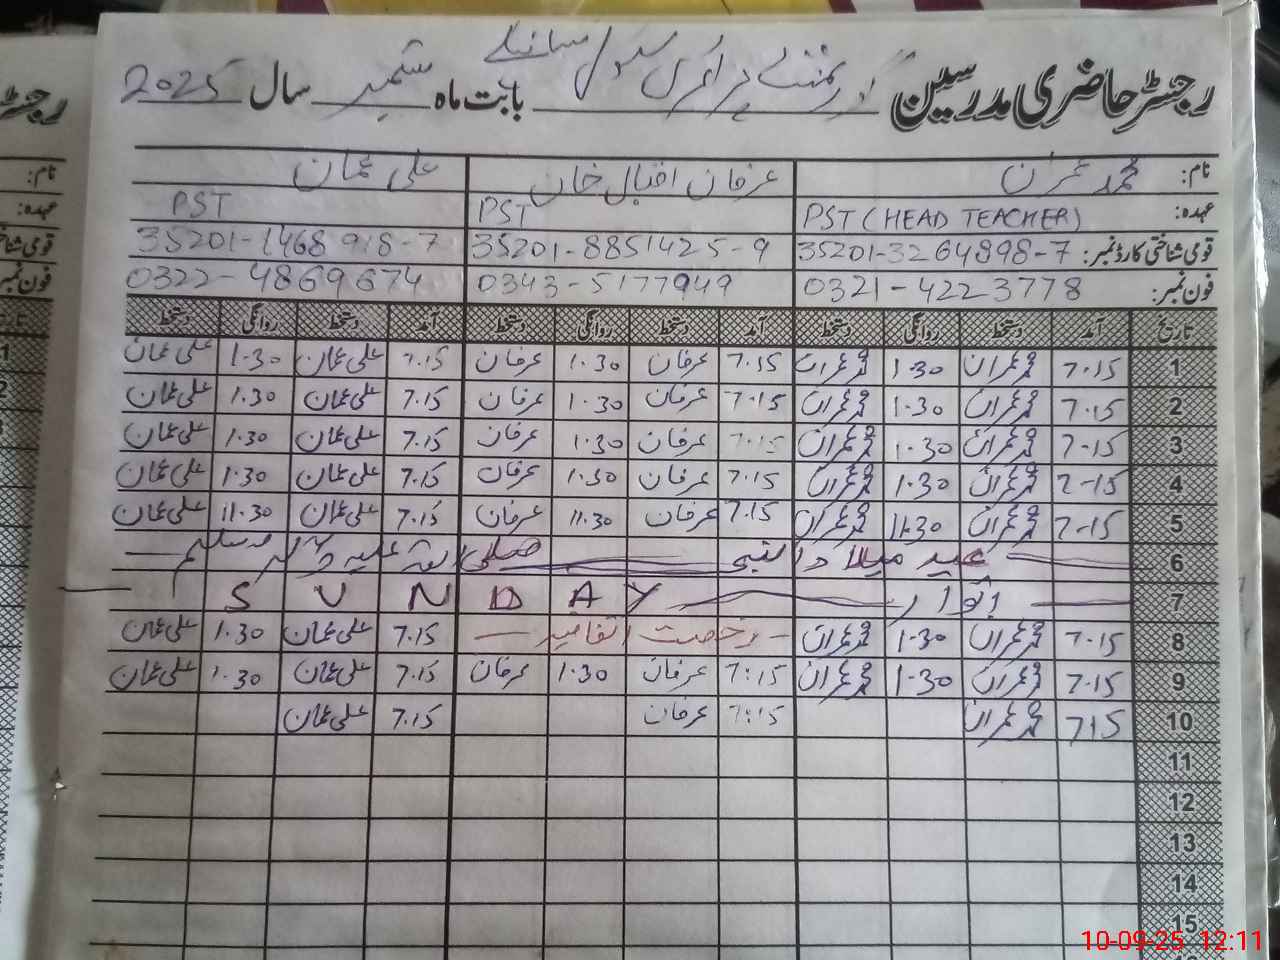 رجسٹر حاضری مدرسین گورنمنٹ پرائمری سکول بابت ماہ ستمبر سال 2025
نام: محمد عمران عرفان اقبال خان علی عمان
عہدہ: PST (HEAD TEACHER) PST PST
قومی شناختی کارڈ نمبر: 35201-3264898-7 35201-8851425-9 35201-1468918-7
فون نمبر: 0321-4223778 0343-5177949 0322-4869674
تاریخ آمد دستخط روانگی دستخط آمد دستخط روانگی دستخط آمد دستخط روانگی دستخط
1 7.15 محمد عمران 1.30 محمد عمران 7.15 عرفان 1.30 عرفان 7.15 علی عمان 1.30 علی عمان
2 7.15 محمد عمران 1.30 محمد عمران 7.15 عرفان 1.30 عرفان 7.15 علی عمان 1.30 علی عمان
3 7-15 محمد عمران 1.30 محمد عمران 7.15 عرفان 1.30 عرفان 7.15 علی عمان 1.30 علی عمان
4 7-15 محمد عمران 1.30 محمد عمران 7.15 عرفان 1.30 عرفان 7.15 علی عمان 1.30 علی عمان
5 7-15 محمد عمران 11.30 محمد عمران 7.15 عرفان 11.30 عرفان 7.15 علی عمان 11.30 علی عمان
6 عید میلاد النبی صلی اللہ علیہ وآلہ وسلم
7 اتوار SUNDAY
8 7.15 محمد عمران 1.30 محمد عمران رخصت اتفاقیہ 7.15 علی عمان 1.30 علی عمان
9 7.15 محمد عمران 1.30 محمد عمران 7:15 عرفان 1.30 عرفان 7.15 علی عمان 1.30 علی عمان
10 715 محمد عمران 7:15 عرفان 7.15 علی عمان
11
12
13
14
15
10-09-25 12:11